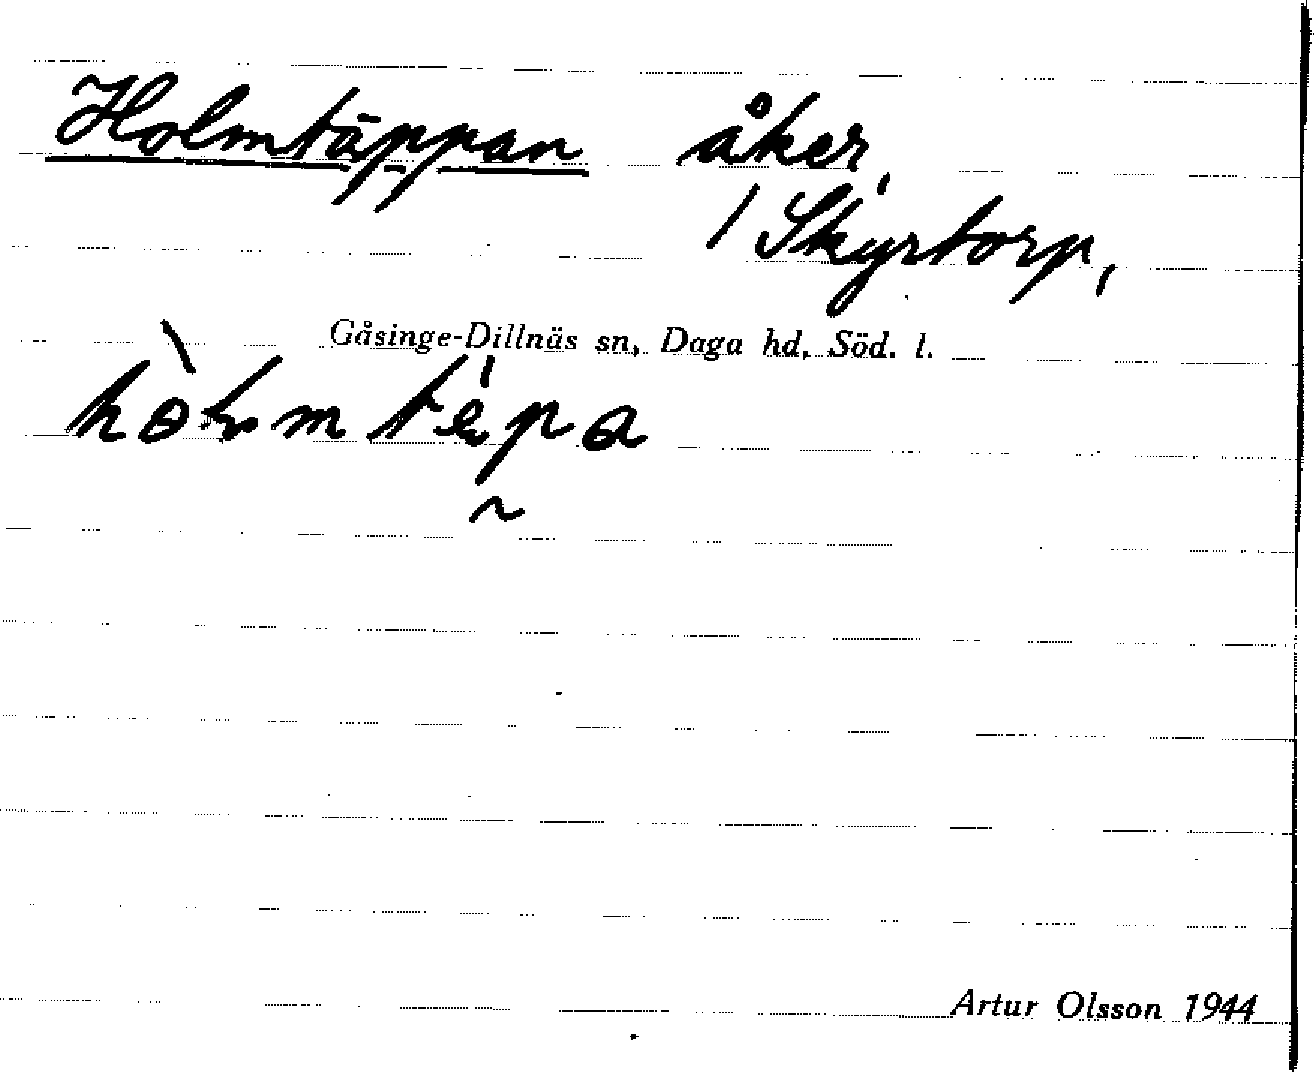 Holmtäppan åker,
/ Skyrtorp,
Gåsinge-Dillnäs sn, Daga hd, Söd. l.
Artur Olsson 1944